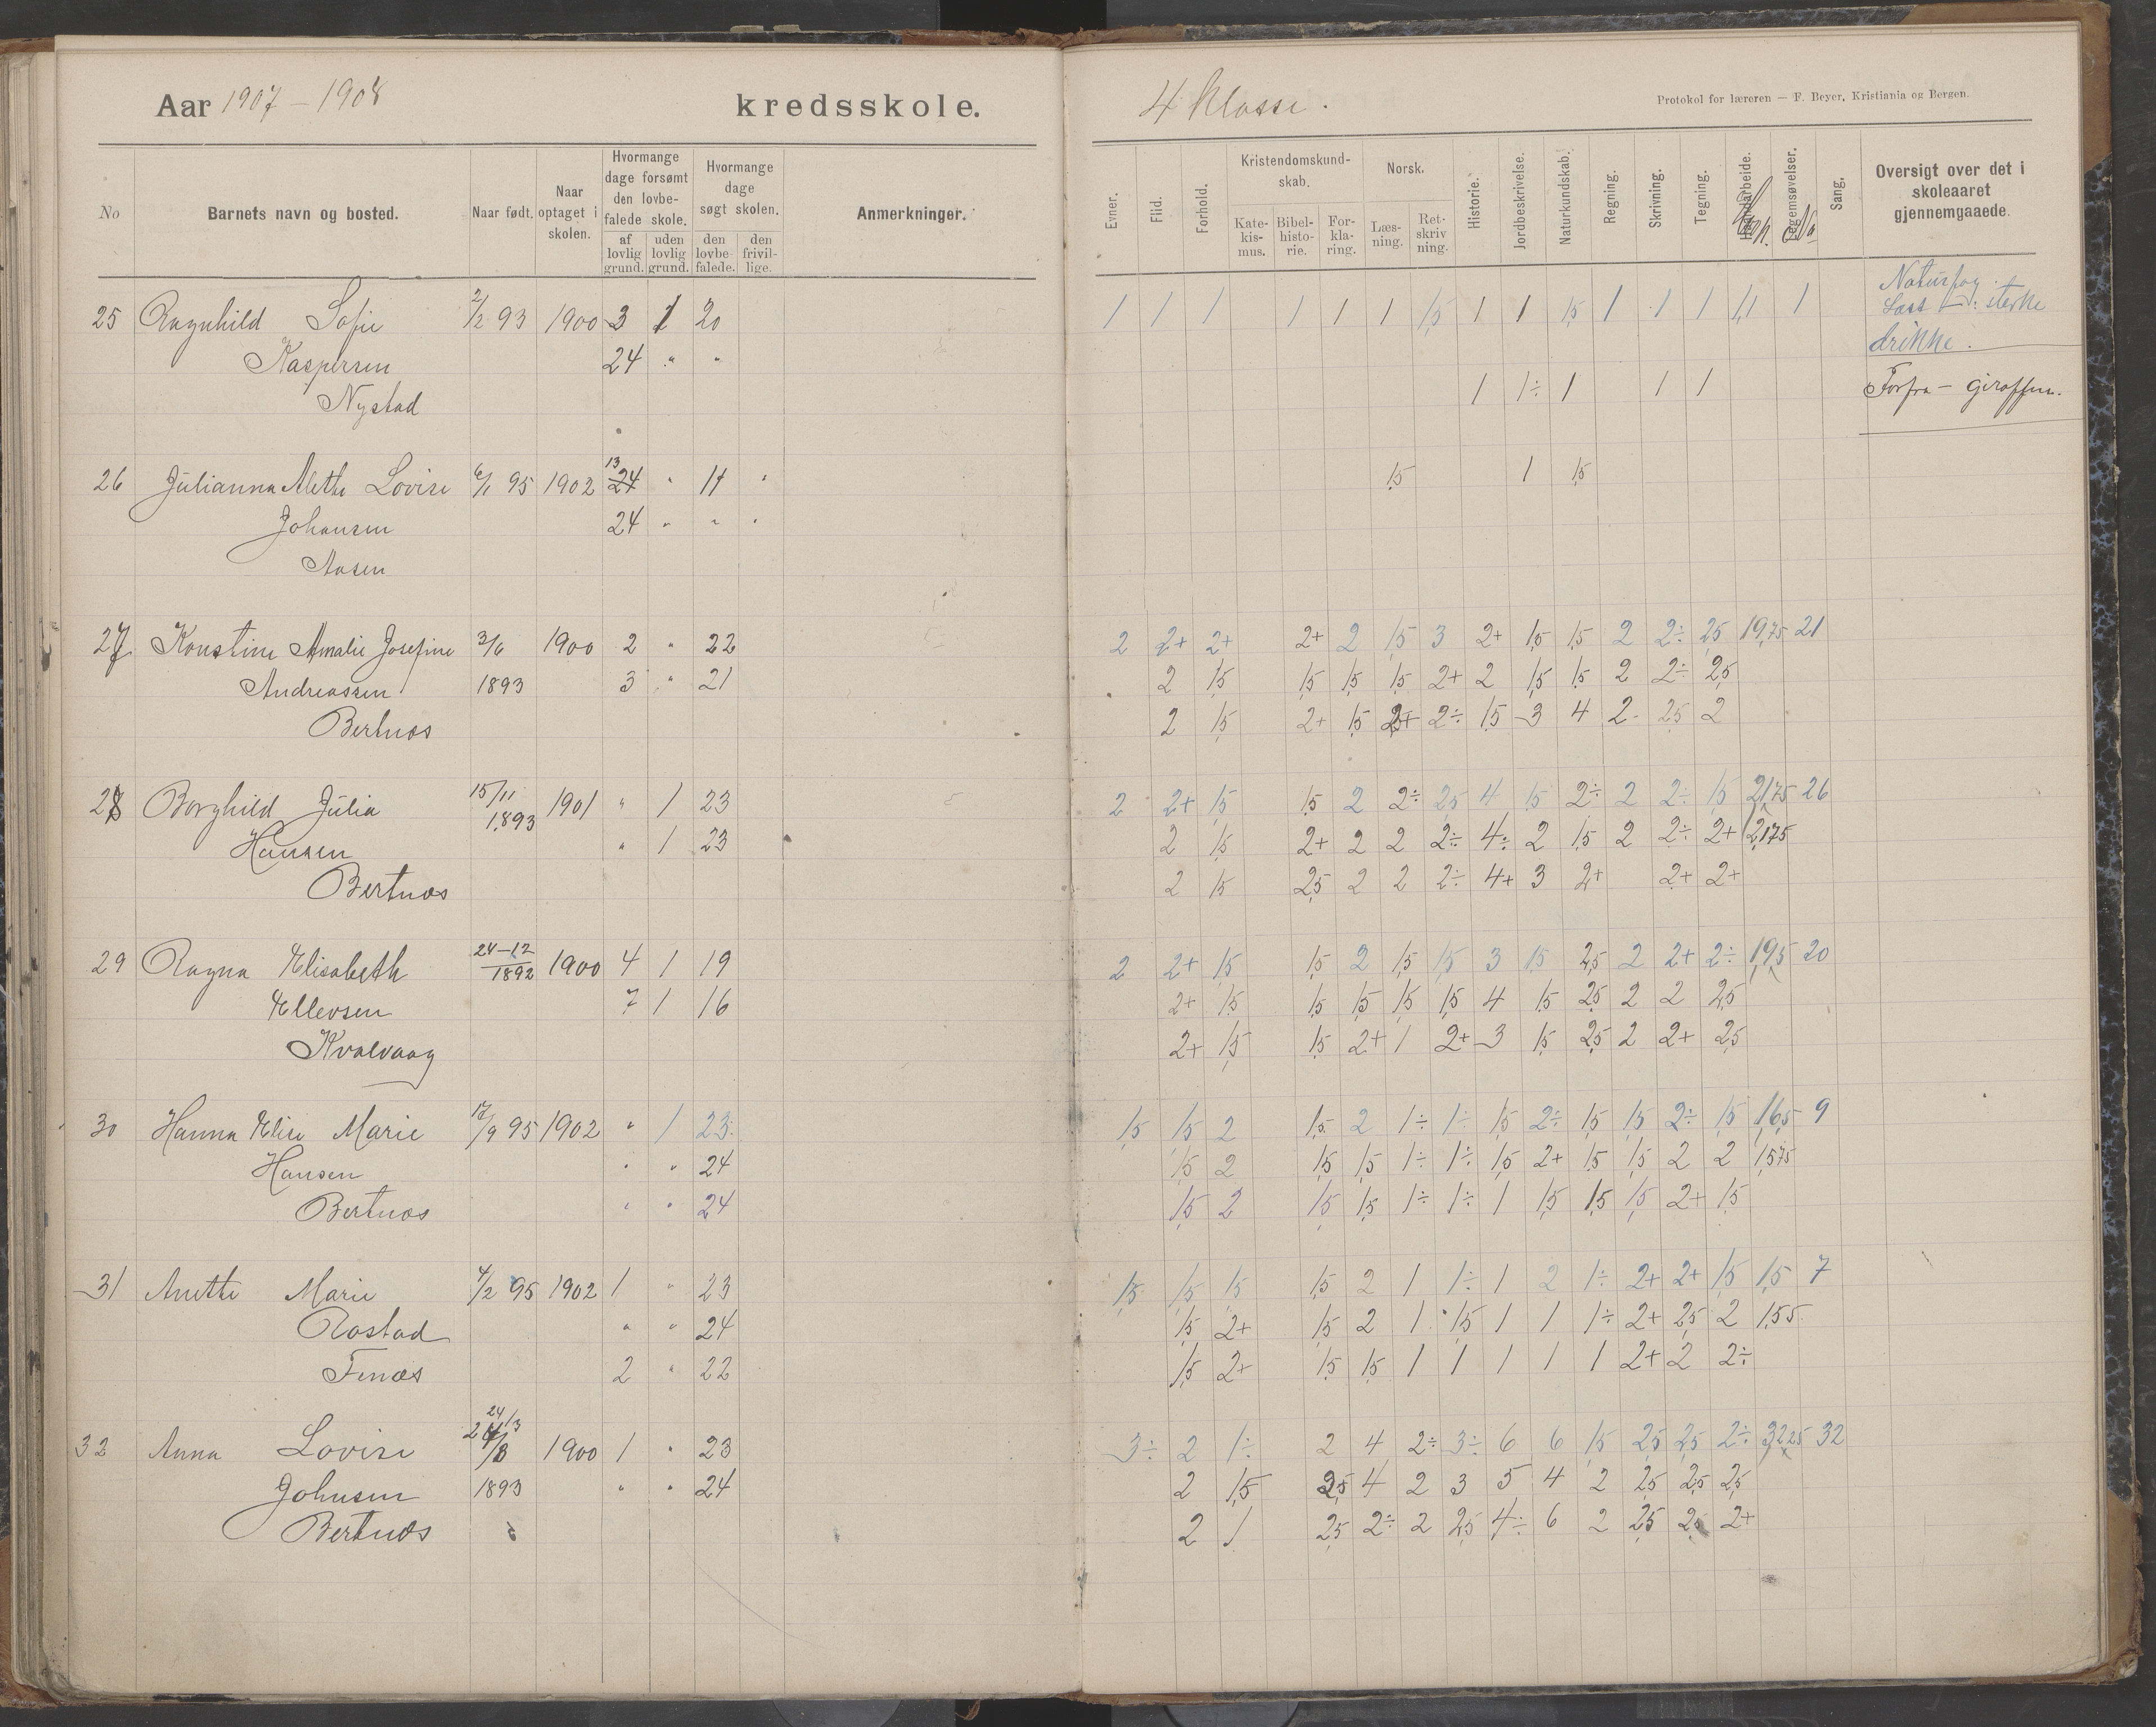 Aar 1907 – 1908 kredsskole.
No
Barnets navn og bosted.
Naar født.
Naar optaget i skolen.
Hvormange dage forsømt den lovbefalede skole.
af lovlig grund.
uden lovlig grund.
Hvormange dage søgt skolen.
den lovbefalede.
den frivillige.
Anmerkninger.
25 Ragnhild Sofie 2/2 93 1900 3 1 20
Kaspersen 24 " "
Nystad
26 Julianna Alethe Lovise 6/1 95 1902 13 24 " 11 "
Johansen 24 " " "
Aasen
27 Konstine Amalie Josefine 3/6 1900 2 " 22
Andreassen 1893 3 " 21
Bertnæs
28 Borghild Julia 15/11 1893 1901 " 1 23
Hansen " 1 23
Bertnæs
29 Ragna Elisabeth 24-12 1892 1900 4 1 19
Ellevsen 7 1 16
Kvalvaag
30 Hanna Elise Marie 17/9 95 1902 " 1 23
Hansen " " 24
Bertnæs " " 24
31 Anethe Marie 4/2 95 1902 1 " 23
Rostad " " 24
Finæs 2 " 22
32 Anna Lovise 24/3 1900 1 " 23
Johnsen 1893 " " 24
Bertnæs
4 klasse.
Protokol for læreren — F. Beyer, Kristiania og Bergen.
Evner.
Flid.
Forhold.
Kristendomskundskab.
Katekismus.
Bibelhistorie.
Forklaring.
Norsk.
Læsning.
Retskrivning.
Historie.
Jordbeskrivelse.
Naturkundskab.
Regning.
Skrivning.
Tegning.
Haandarbeide.
Legemsøvelser.
Sang.
Oversigt over det i skoleaaret gjennemgaaede.
1 1 1 1 1 1 1,5 1 1 1,5 1 1 1 1,1 1
Naturfag.
Læst — : sterke
drikke.
1 1÷ 1 1 1 Forfra – Giraffen.
1,5 1 1,5
2 2+ 2+ 2+ 2 1,5 3 2+ 1,5 1,5 2 2÷ 2,5 19,75 21
2 1,5 1,5 1,5 1,5 2+ 2 1,5 1,5 2 2÷ 2,5
2 1,5 2+ 1,5 2+ 2÷ 1,5 3 4 2- 2,5 2
2 2+ 1,5 1,5 2 2÷ 2,5 4 1,5 2÷ 2 2÷ 1,5 21,75 26
2 1,5 2+ 2 2 2÷ 4÷ 2 1,5 2 2÷ 2+ 2,175
2 1,5 2,5 2 2 2÷ 4+ 3 2+ 2+ 2+
2 2+ 1,5 1,5 2 1,5 1,5 3 1,5 2,5 2 2+ 2÷ 19,5 20
2+ 1,5 1,5 1,5 1,5 1,5 4 1,5 2,5 2 2 2,5
2+ 1,5 1,5 2+ 1 2+ 3 1,5 2,5 2 2+ 2,5
1,5 1,5 2 1,5 2 1÷ 1÷ 1,5 2÷ 1,5 1,5 2÷ 1,5 16,5 9
1,5 2 1,5 1,5 1÷ 1÷ 1,5 2+ 1,5 1,5 2 2 1,575
1,5 2 1,5 1,5 1÷ 1÷ 1 1,5 1,5 1,5 2+ 1,5
1,5 1,5 1,5 1,5 2 1 1÷ 1 2 1÷ 2+ 2+ 1,5 1,5 7
1,5 2+ 1,5 2 1 1,5 1 1 1÷ 2+ 2,5 2 1,55
1,5 2+ 1,5 1,5 1 1 1 1 1 2+ 2 2÷
3÷ 2 1÷ 2 4 2÷ 3÷ 6 6 1,5 2,5 2,5 2÷ 32,25 32
2 1,5 2,5 4 2 3 5 4 2 2,5 2,5 2,5
2 1 2,5 2÷ 2 2,5 4÷ 6 2 2,5 2,5 2+